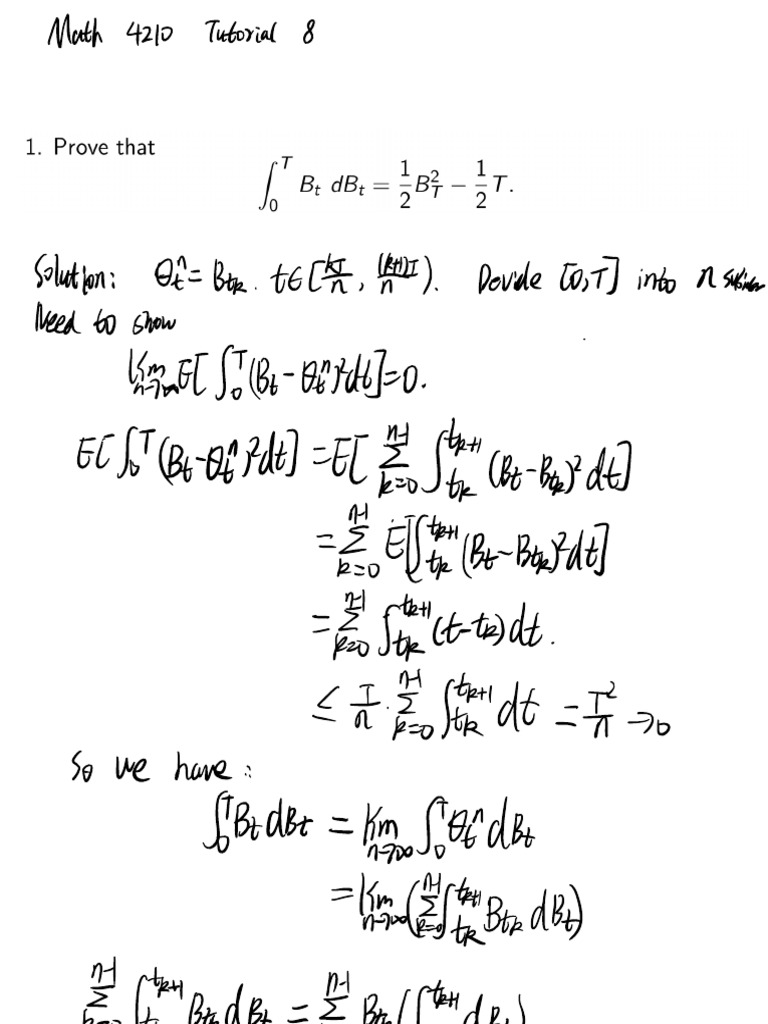 Math 4210 Tutorial 8
1. Prove that
∫_0^T B_t dB_t = 1/2 B_T^2 − 1/2 T.
Solution: θ_t^n = B_{t_k}. t∈[kT/n, (k+1)T/n). Devide [0,T] into n
Need to show
lim_{n→∞} E[∫_0^T (B_t − θ_t^n)^2 dt] = 0.
E[∫_0^T (B_t − θ_t^n)^2 dt] = E[∑_{k=0}^{n-1} ∫_{t_k}^{t_{k+1}} (B_t − B_{t_k})^2 dt]
= ∑_{k=0}^{n-1} E[∫_{t_k}^{t_{k+1}} (B_t − B_{t_k})^2 dt]
= ∑_{k=0}^{n-1} ∫_{t_k}^{t_{k+1}} (t − t_k) dt.
≤ T/n · ∑_{k=0}^{n-1} ∫_{t_k}^{t_{k+1}} dt = T^2/n → 0
So we have:
∫_0^T B_t dB_t = lim_{n→∞} ∫_0^T θ_t^n dB_t
= lim_{n→∞} (∑_{k=0}^{n-1} ∫_{t_k}^{t_{k+1}} B_{t_k} dB_t)
∑_{k=0}^{n-1} ∫_{t_k}^{t_{k+1}} B_{t_k} dB_t = ∑^{n-1} B_{t_k} (∫^{t_{k+1}} dB_t)